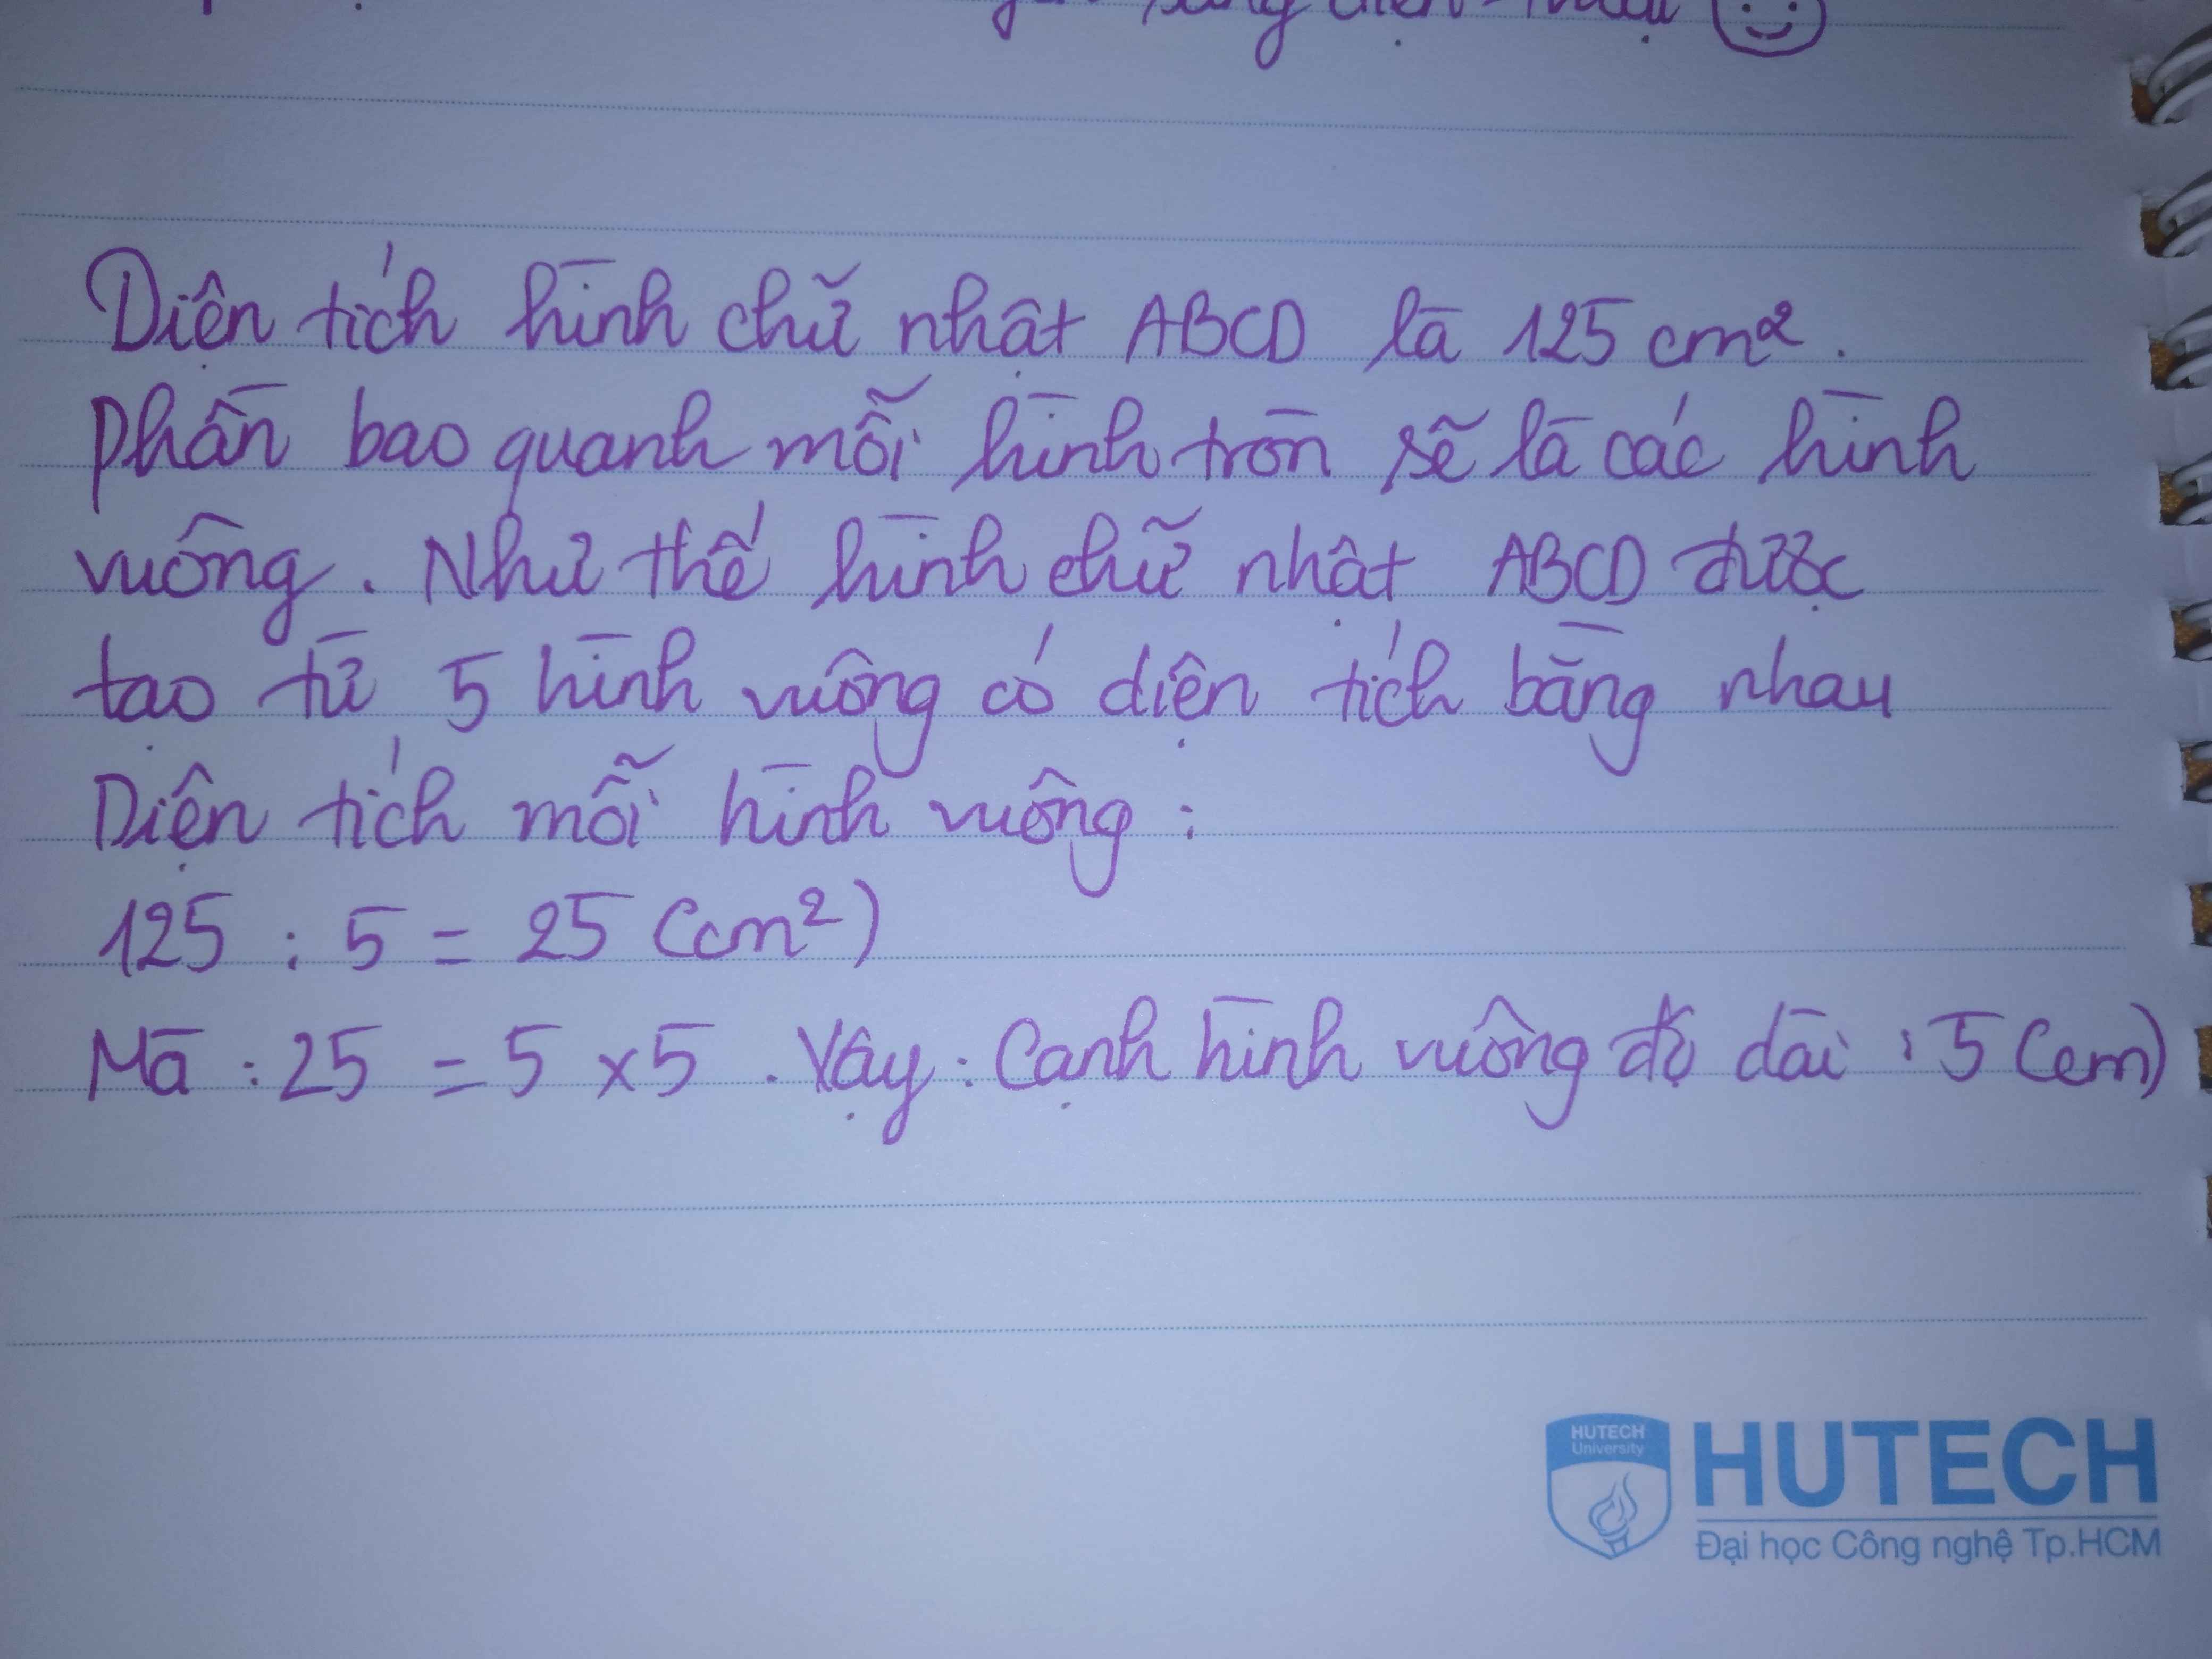 điện thoại
Diện tích hình chữ nhật ABCD là 125 cm².
Phần bao quanh mỗi hình tròn sẽ là các hình
vuông. Như thế hình chữ nhật ABCD được
tạo từ 5 hình vuông có diện tích bằng nhau
Diện tích mỗi hình vuông :
125 : 5 = 25 (cm²)
Mà : 25 = 5 x 5 . Vậy : Cạnh hình vuông độ dài : 5 (cm)
HUTECH
University
HUTECH
Đại học Công nghệ Tp.HCM